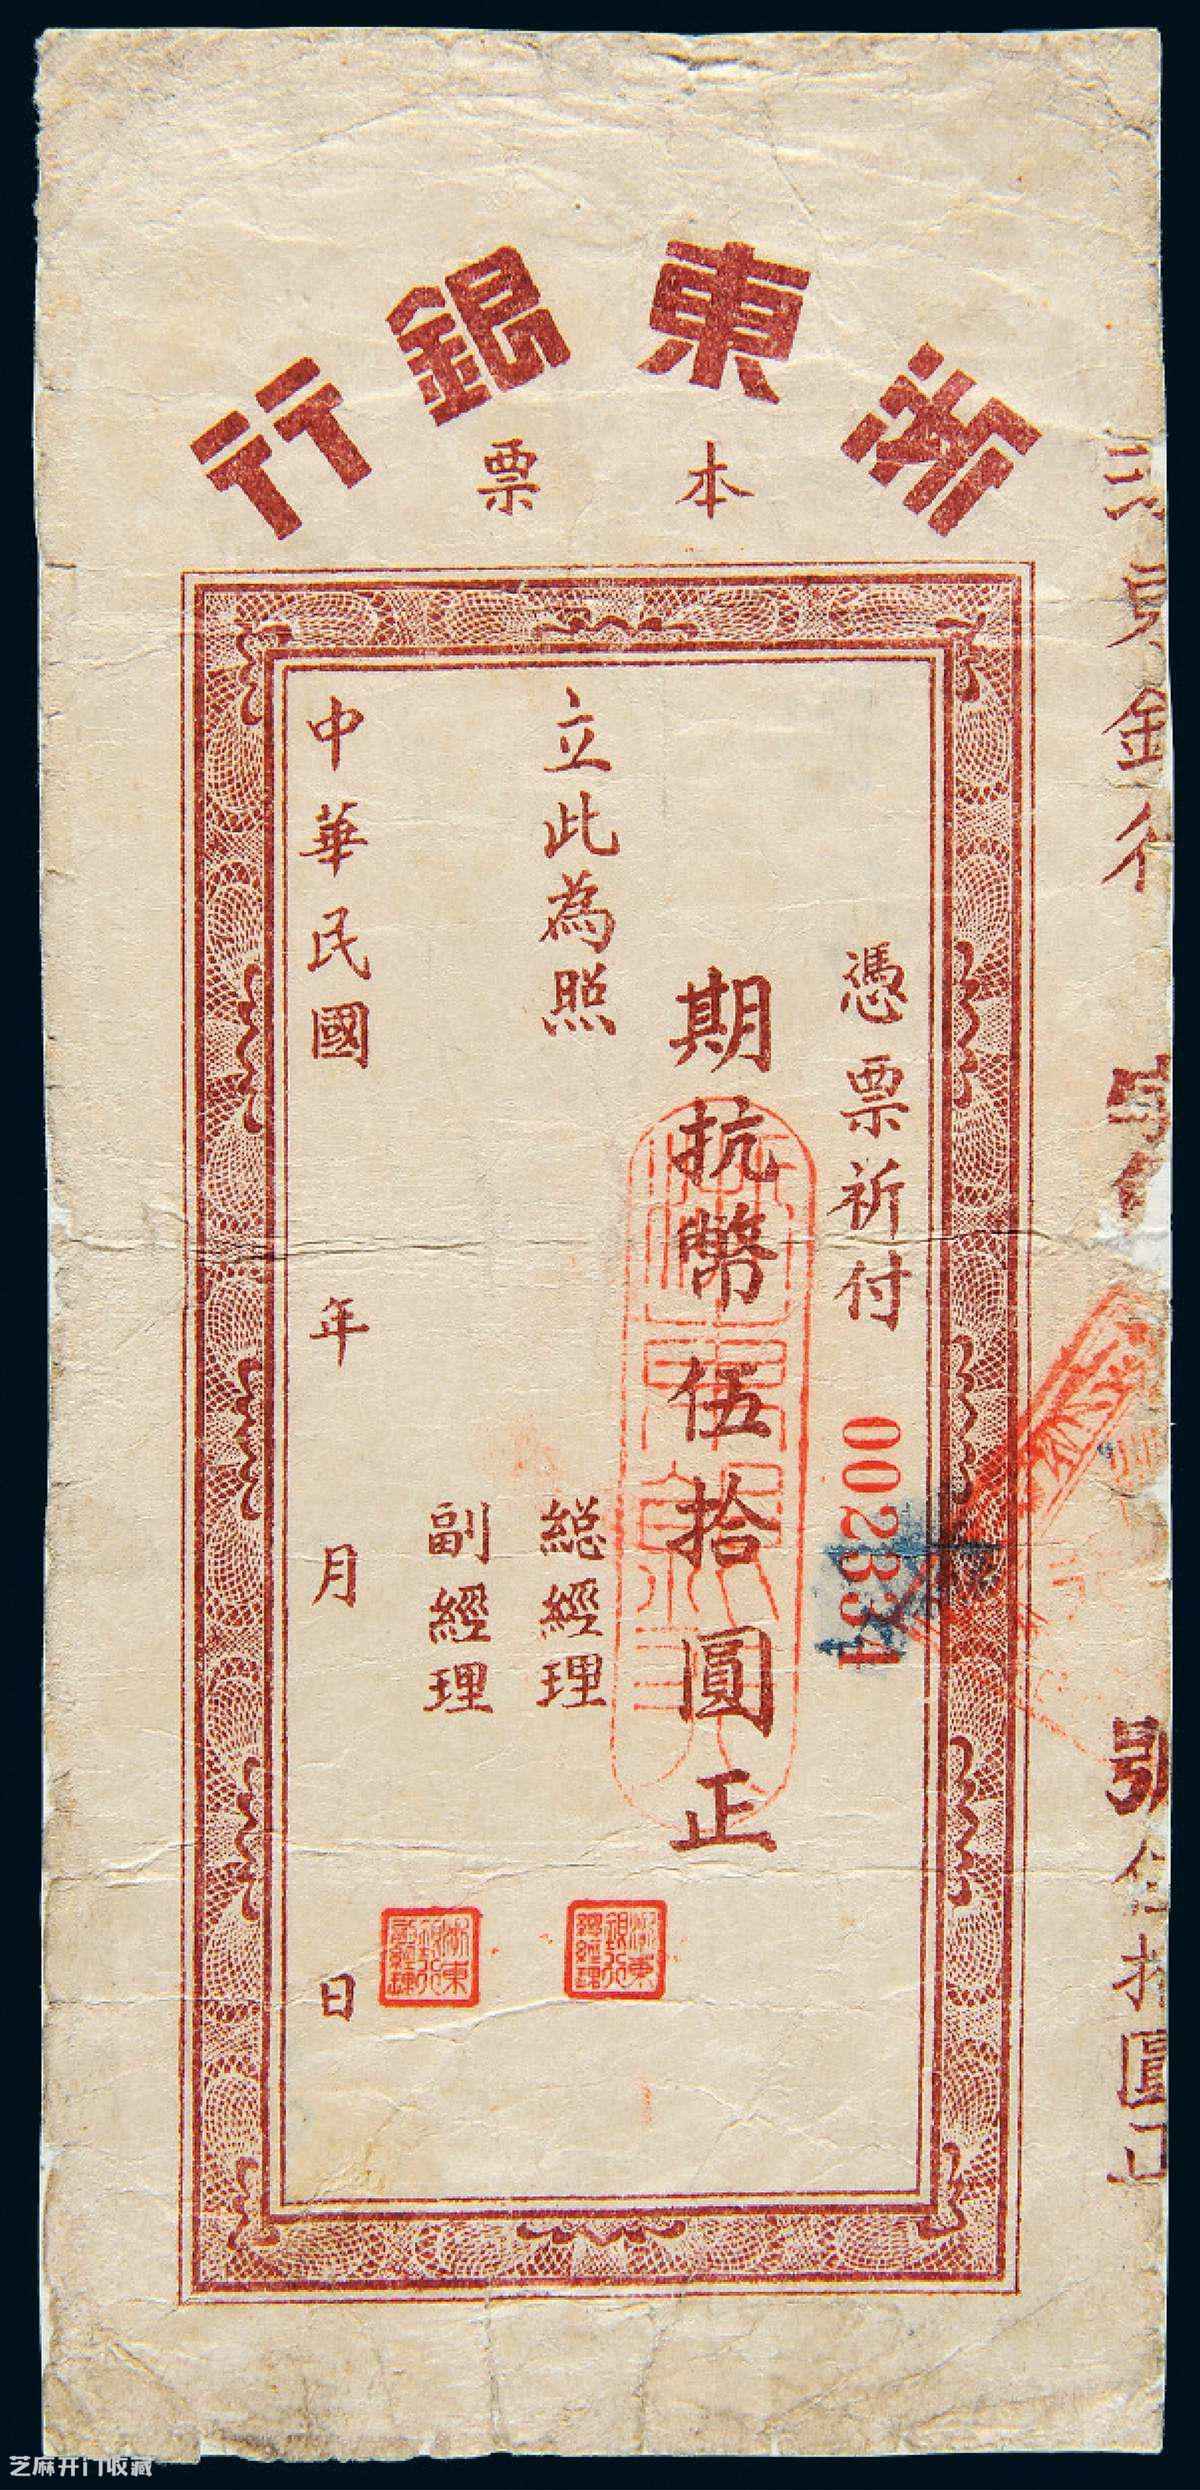 浙東銀行
本票
憑票祈付
002334
期抗幣伍拾圓正
立此為照
総經理
副經理
中華民國 年 月 日
浙東銀行總經理
浙東銀行副經理
浙東銀行 字第 號伍拾圓正
芝麻开门收藏